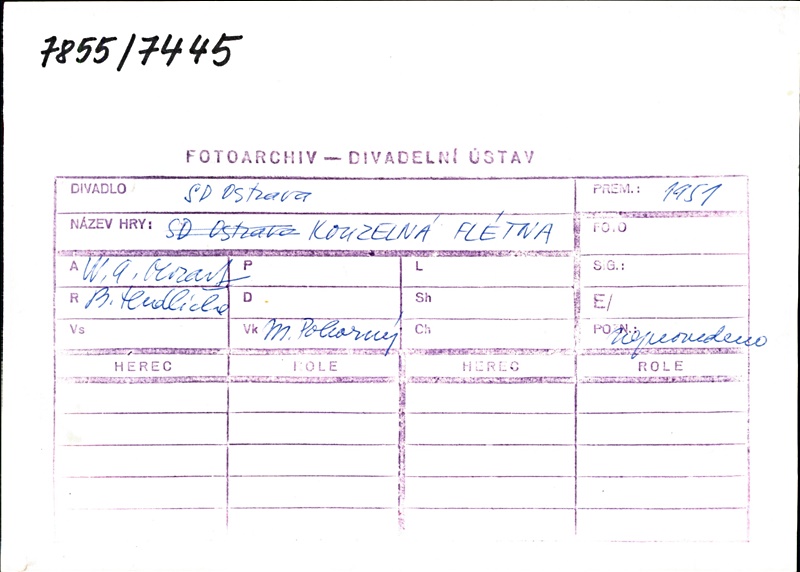 7855/7445
FOTOARCHIV — DIVADELNÍ ÚSTAV
DIVADLO SD Ostrava PREM.: 1951
NÁZEV HRY: SD Ostrava KOUZELNÁ FLÉTNA FOTO
A W. A. Mozart P L SIG.:
R B. Hrdlička D Sh E/
Vs Vk M. Pokorný Ch POZN.: Neprovedeno
HEREC ROLE HEREC ROLE